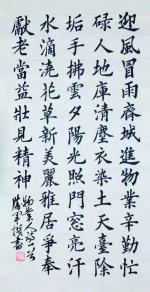 迎風冒雨喬城進物業辛勤忙
碌人地庫清塵衣染土天臺除
垢手拂雲夕陽光照門窗亮汗
水滴澆花草新美麗雅居爭奉
獻老當益壯見精神